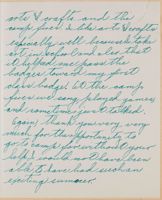 arts & crafts and the
camp fires. I like arts & crafts
especially well because I take
art in school and also that
it helped me pass the
badges toward my first
class badge. At the camp
fires we sang, played games
and sometimes just talked.
Again, thank you very very
much for the opportunity to
go to camp for without your
help I would not have been
able to have had such an
exciting summer.